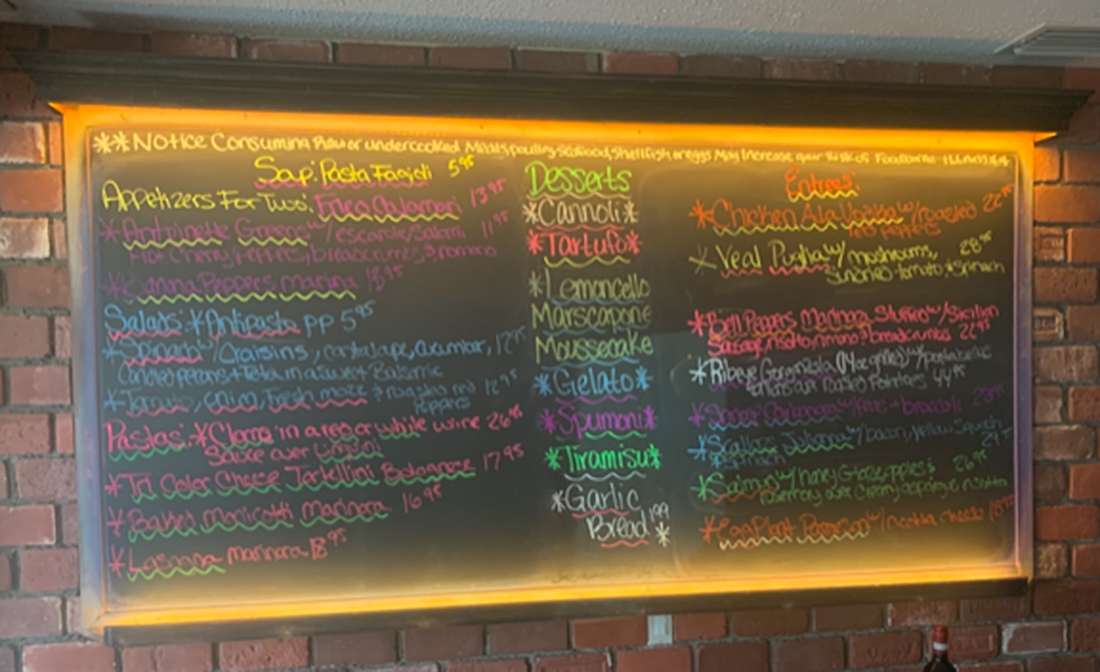 **Notice Consuming Raw or undercooked Meats, poultry, seafood, shellfish or eggs May Increase your Risk of Foodborne Illness**
Soup: Pasta Fagioli 5.95
Appetizers For Two: Fried Calamari 13.95
*Antoinette Greens w/escarole/salami 11.95
Hot cherry peppers, breadcrumbs & romano
*Banana Peppers marinara
Salads: *Antipasto pp 5.95
*Spinach w/Craisins, cantalope, cucumber, 12.95
Candied pecans + Feta Balsamic
*Tomato, onion, Fresh motz & roasted red 12.95
Peppers
Pastas: *Clams in a red or white wine 26.95
Sauce over
*Tri Color Cheese Tortellini Bolognese 17.95
*Baked Manicotti Marinara 16.95
*Lasagna marinara 18.95
Desserts
*Cannoli*
*Tartufo*
*Lemoncello
Marscapone
Moussecake
*Gelato*
*Spumoni*
*Tiramisu*
*Garlic
Bread 1.99*
Entrees:
*Chicken Ala Vodka w/roasted
red peppers
*Veal Puglia w/mushrooms, 28.95
Sundried tomato & spinach
*Bell Peppers Marinara Stuffed w/Sicilian
Sausage, risotto, romano & breadcrumbs 22.95
*Ribeye Gorgonzola
roasted Potatoes 44.95
w/Peas + broccoli
*Scallops Juliana w/bacon, yellow squash
Spinach
*Salmon w/honey Glazed apples & 26.95
rosemary over creamy asparagus risotto
*EggPlant w/ricotta cheese